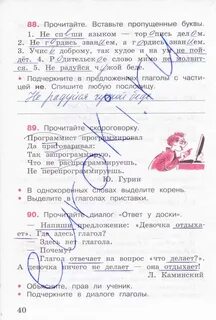 88. Прочитайте. Вставьте пропущенные буквы.
1. Не спеши языком — торопись делом.
2. Не гордись званием, а гордись знанием.
3. Учись доброму, так худое и на ум не пой-
дёт. 4. Родительское слово мимо не молвит-
ся. 5. Не радуйся чужой беде.
• Подчеркните в предложениях глаголы с части-
цей не. Спишите любую пословицу.
Не радуйся чужой беде.
89. Прочитайте скороговорку.
Программист программировал
Да приговаривал:
Так запрограммирую,
Что не распрограммируешь,
Не перепрограммируешь.
Ю. Гурин
• В однокоренных словах выделите корень.
• Выделите в глаголах приставки.
90. Прочитайте диалог «Ответ у доски».
— Напиши предложение: «Девочка отдыха-
ет». Где здесь глагол?
— Здесь нет глагола.
— Почему?
— Глагол отвечает на вопрос «что делает?».
А девочка ничего не делает — она отдыхает!
Л. Каминский
• Объясните, прав ли ученик.
• Подчеркните в диалоге глаголы.
40